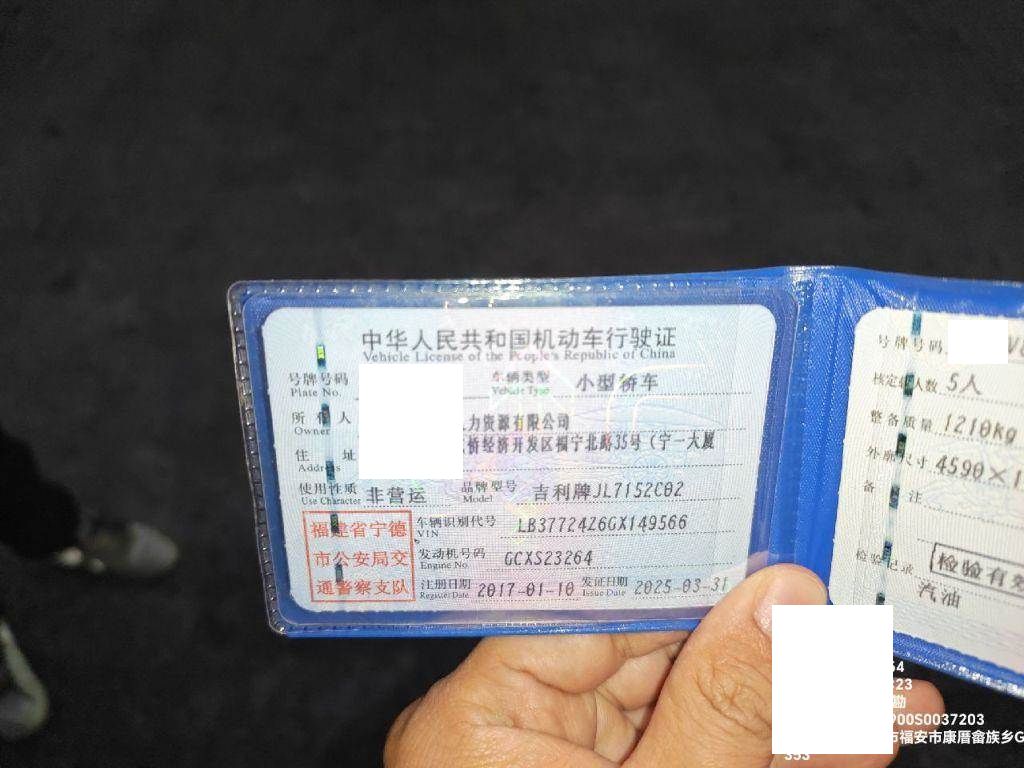 中华人民共和国机动车行驶证
Vehicle License of the People's Republic of China
号牌号码
Plate No.
车辆类型 小型轿车
Vehicle Type
所有人 力资源有限公司
Owner
住址 侨经济开发区福宁北路35号（宁一大厦
Address
使用性质 非营运 品牌型号 吉利牌JL7152C02
Use Character Model
福建省宁德
市公安局交
通警察支队
车辆识别代号 LB37724Z6GX149566
VIN
发动机号码 GCXS23264
Engine No.
注册日期 2017-01-10 发证日期 2025-03-31
Register Date Issue Date
号牌号码
核定载人数 5人
整备质量 1210kg
外廓尺寸 4590×1
备注
检验记录 检验有效
汽油
54
:23
勘
900S0037203
市福安市康厝畲族乡G
353